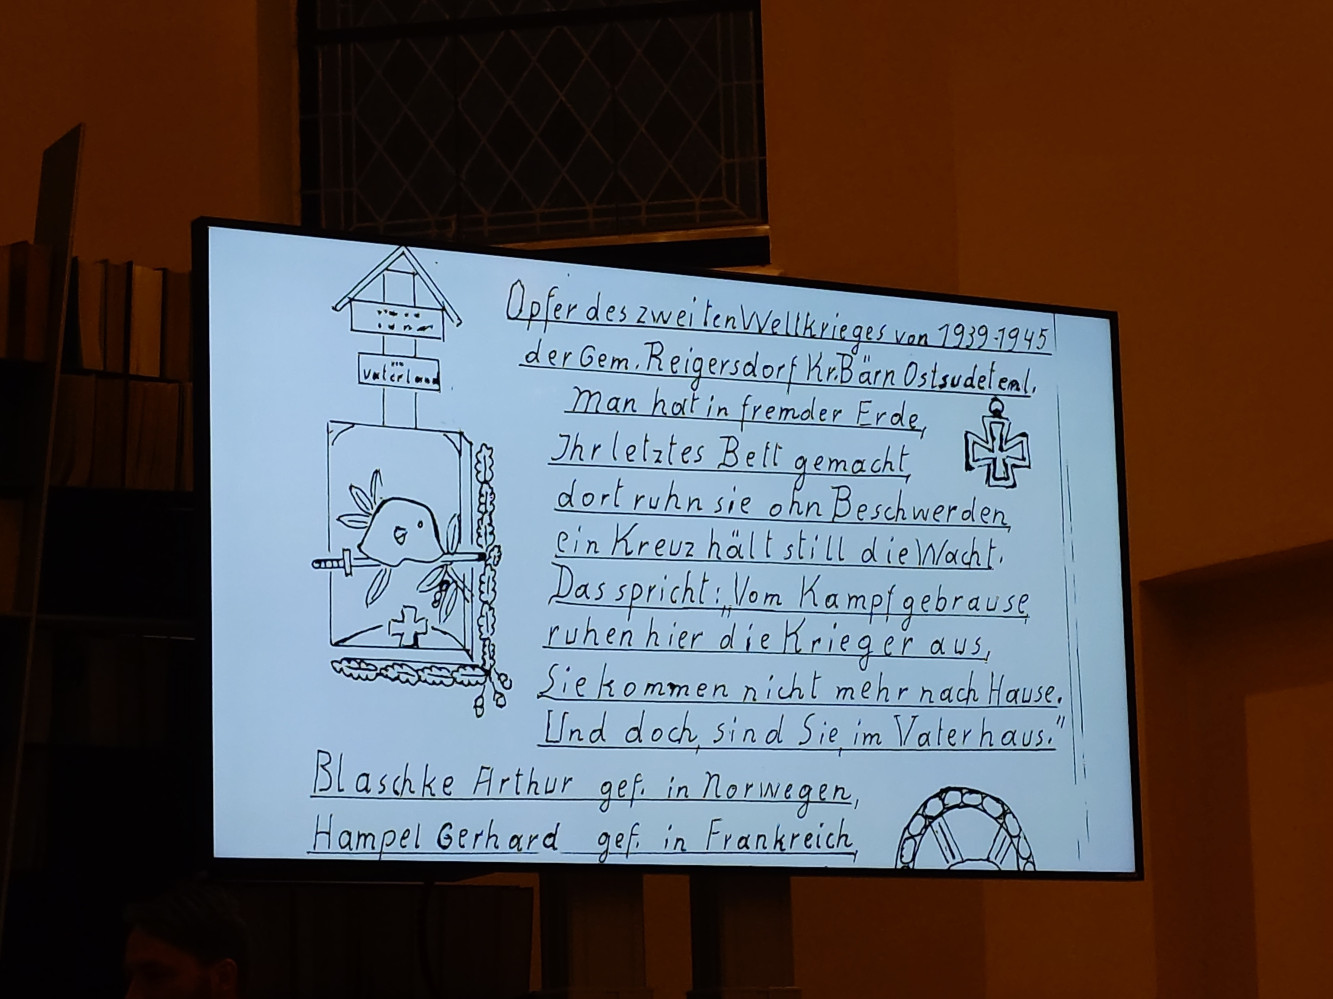 vaterland
Opfer des zweiten Weltkrieges von 1939-1945
der Gem. Reigersdorf Kr. Bärn Ostsudetenl.
Man hat in fremder Erde,
Ihr letztes Bett gemacht,
dort ruhn sie ohn Beschwerden,
ein Kreuz hält still die Wacht.
Das spricht: „Vom Kampfgebrause
ruhen hier die Krieger aus,
Sie kommen nicht mehr nach Hause.
Und doch, sind Sie, im Vaterhaus."
Blaschke Arthur gef. in Norwegen,
Hampel Gerhard gef. in Frankreich,